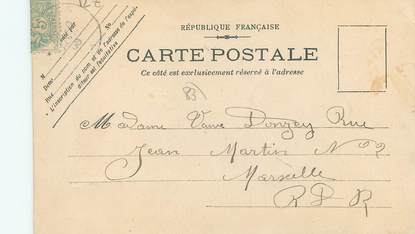 RÉPUBLIQUE FRANÇAISE
CARTE POSTALE
Ce côté est exclusivement réservé à l'adresse
M
Demt
Rue
L'inscription du nom et de l'adresse de l'expé-
diteur est facultative
83
Madame Vauve Donzey Rue
Jean Martin N° 2
Marseille
R D R